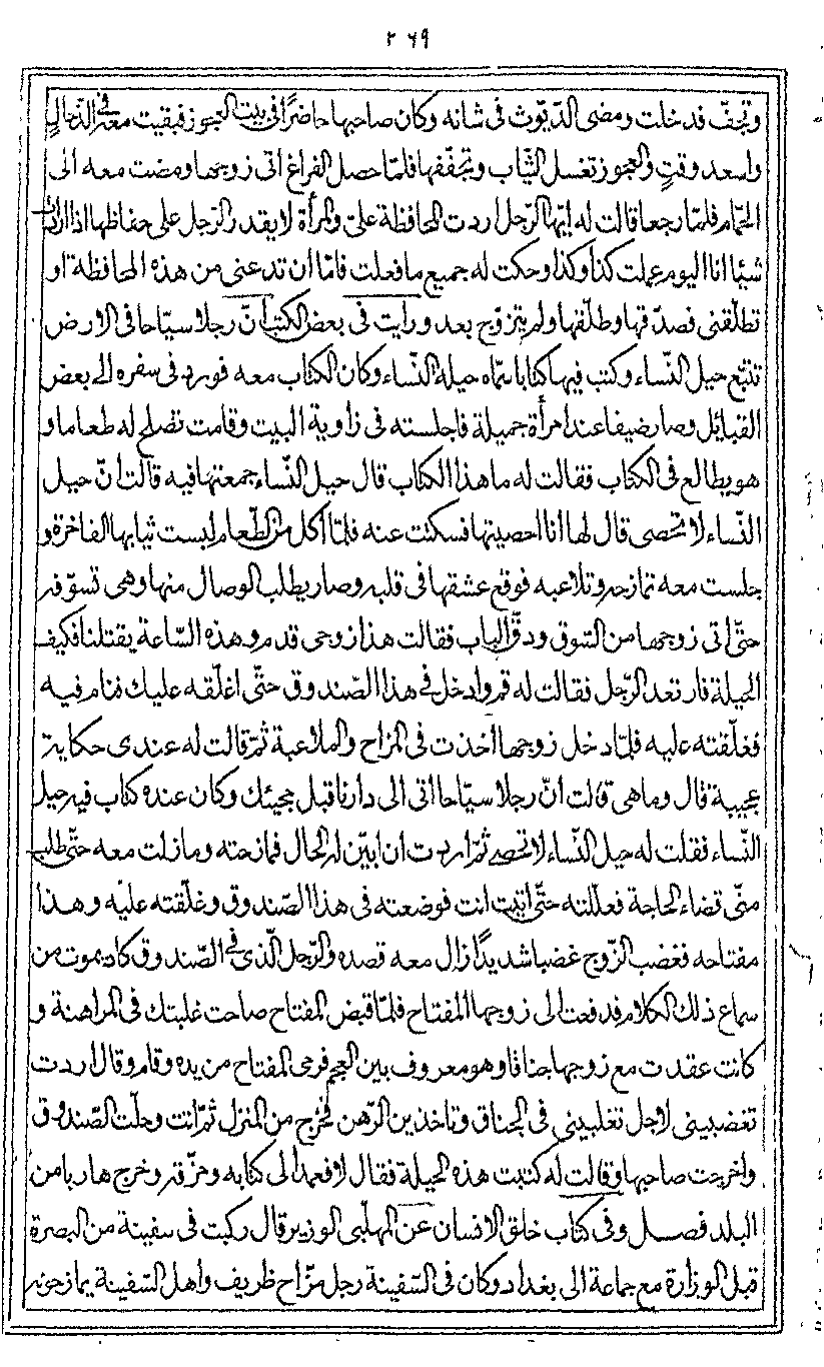 ٢٦٩
وتجفّ فدخلت ومضى الدّيّوث فى شانه وكان صاحبها حاضرًا فى بيت العجوز فبقيت معه فى الذّحال
واسعد وقتٍ والعجوز تغسل الثّياب وتجفّفها فلمّا حصل الفراغ اتى زوجها ومضت معه الى
الحمّام فلمّا رجعا قالت له ايّها الرّجل اردت المحافظة علىّ والمرأة لا يقدر الرّجل على حفاظها اذا ارادت
شيئا انا اليوم عملت كذا وكذا وحكت له جميع ما فعلت فامّا ان تدعنى من هذه المحافظة او
تطلّقنى فصدّقها وطلّقها ولم يتزوّج بعد ورايت فى بعض الكتب انّ رجلا سيّاحا فى الارض
تتبّع حيل النّساء وكتب فيها كتابا سمّاه حيلة النّساء وكان الكتاب معه فورد فى سفره الى بعض
القبائل وصار ضيفا عند امرأة جميلة فاجلسته فى زاوية البيت وقامت تصلح له طعاما و
هو يطالع فى الكتاب فقالت له ما هذا الكتاب قال حيل النّساء جمعتها فيه قالت انّ حيل
النّساء لا تحصى قال لها انا احصيتها فسكتت عنه فلمّا اكل من الطّعام لبست ثيابها الفاخرة و
جلست معه تمازحه وتلاعبه فوقع عشقها فى قلبه وصار يطلب الوصال منها وهى تسوّفه
حتّى اتى زوجها من السّوق ودقّ الباب فقالت هذا زوجى قدم وهذه السّاعة يقتلنا فكيف
الحيلة فارتعد الرّجل فقالت له قم وادخل فى هذا الصّندوق حتّى اغلّقه عليك فنام فيه
فغلّقته عليه فلمّا دخل زوجها اخذت فى المزاح والملاعبة ثمّ قالت له عندى حكاية
عجيبة قال وما هى قالت انّ رجلا سيّاحا اتى الى دارنا قبل مجيئك وكان عنده كتاب فيه حيل
النّساء فقلت له حيل النّساء لا تحصى ثمّ اردت ان ابيّن له الحال فمازحته ومازلت معه حتّى طلب
منّى قضاء الحاجة فعلّلته حتّى اتيت انت فوضعته فى هذا الصّندوق وغلّقته عليه وهذا
مفتاحه فغضب الزّوج غضبا شديدًا زال معه قصده والرّجل الّذى فى الصّندوق كاد يموت من
سماع ذلك الكلام فدفعت الى زوجها المفتاح فلمّا قبض المفتاح صاحت غلبتك فى المراهنة و
كانت عقدت مع زوجها جناقا وهو معروف بين العجم فرمى المفتاح من يده وقام وقال اردت
تغضبينى لاجل تغلبينى فى الجناق وتاخذين الرّهن فخرج من المنزل ثمّ اتت وحلّت الصّندوق
واخرجت صاحبها وقالت له كتبت هذه الحيلة فقال لا فعمد الى كتابه ومزّقه وخرج هاربا من
البلد فصل وفى كتاب خلق الانسان عن المهلّبى الوزير قال ركبت فى سفينة من البصرة
قبل الوزارة مع جماعة الى بغداد وكان فى السّفينة رجل مزّاح ظريف واهل السّفينة يمازحونه